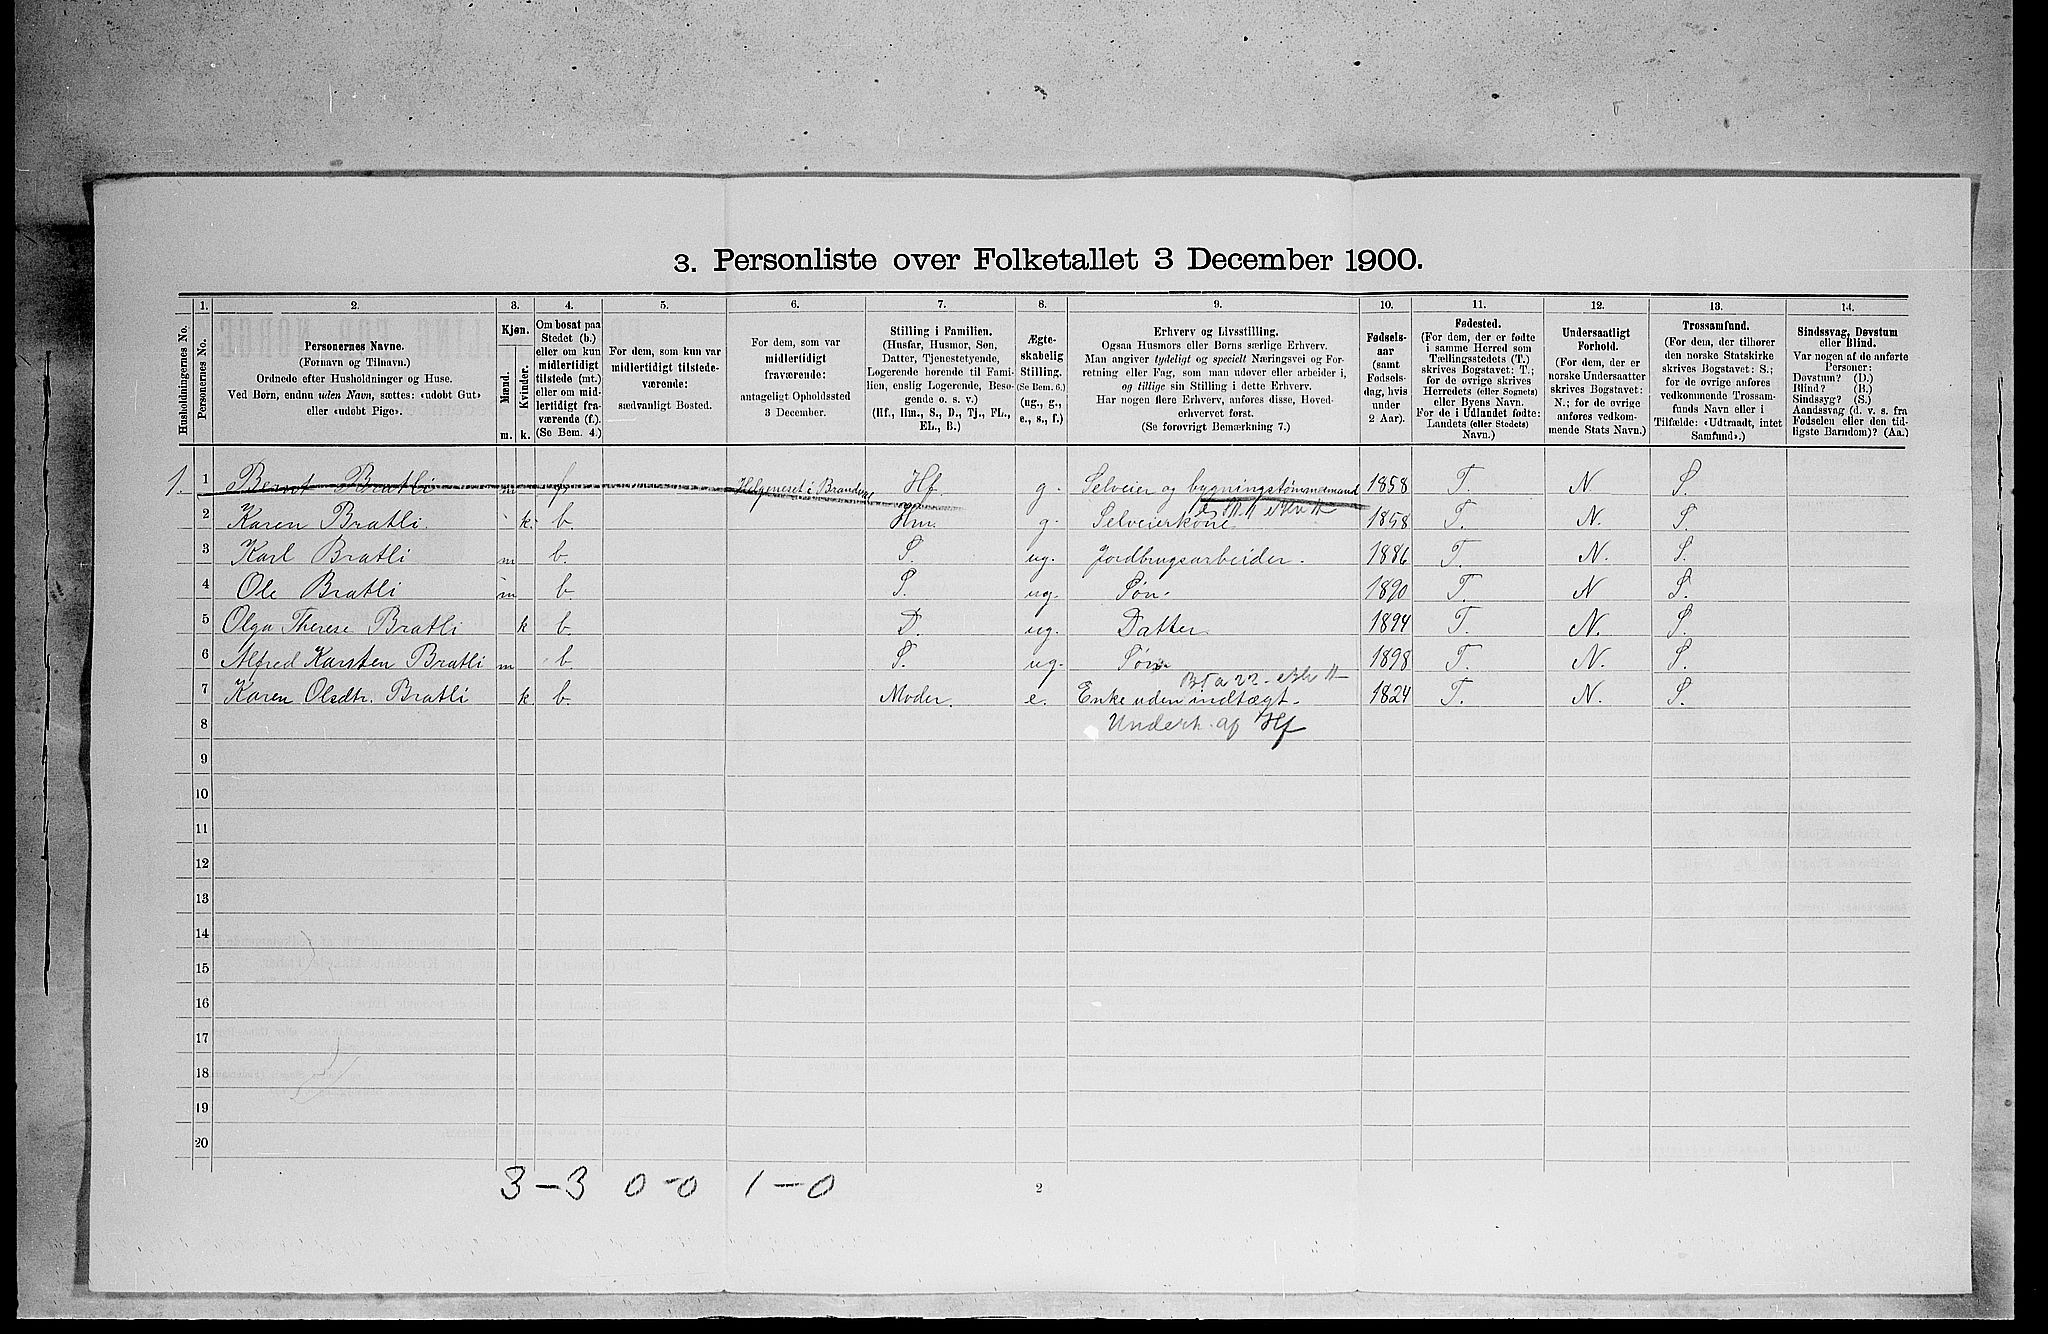 3. Personliste over Folketallet 3 December 1900.
1. 2. 3. 4. 5. 6. 7. 8. 9. 10. 11. 12. 13. 14.
Husholdningernes No.
Personernes No.
Personernes Navne.
(Fornavn og Tilnavn.)
Ordnede efter Husholdninger og Huse.
Ved Børn, endnu uden Navn, sættes: «udøbt Gut»
eller «udøbt Pige».
Kjøn.
Mænd.
Kvinder.
m. k.
Om bosat paa
Stedet (b.)
eller om kun
midlertidigt
tilstede (mt.)
eller om mid-
lertidigt fra-
værende (f.).
(Se Bem. 4.)
For dem, som kun var
midlertidigt tilstede-
værende:
sædvanligt Bosted.
For dem, som var
midlertidigt
fraværende:
antageligt Opholdssted
3 December.
Stilling i Familien.
(Husfar, Husmor, Søn,
Datter, Tjenestetyende,
Logerende hørende til Fami-
lien, enslig Logerende, Besø-
gende o. s. v.)
(Hf., Hm., S., D., Tj., FL.,
EL., B.)
Ægte-
skabelig
Stilling.
(Se Bem. 6.)
(ug., g.,
e., s., f.)
Erhverv og Livsstilling.
Ogsaa Husmors eller Børns særlige Erhverv.
Man angiver tydeligt og specielt Næringsvei og For-
retning eller Fag, som man udøver eller arbeider i,
og tillige sin Stilling i dette Erhverv.
Har nogen flere Erhverv, anføres disse, Hoved-
erhvervet først.
(Se forøvrigt Bemærkning 7.)
Fødsels-
aar
(samt
Fødsels-
dag, hvis
under
2 Aar).
Fødested.
(For dem, der er fødte
i samme Herred som
Tællingsstedets (T.)
skrives Bogstavet: T.;
for de øvrige skrives
Herredets (eller Sognets)
eller Byens Navn.
For de i Udlandet fødte:
Landets (eller Stedets)
Navn.)
Undersaatligt
Forhold.
(For dem, der er
norske Undersaatter
skrives Bogstavet:
N.; for de øvrige
anføres vedkom-
mende Stats Navn.)
Trossamfund.
(For dem, der tilhører
den norske Statskirke
skrives Bogstavet: S.;
for de øvrige anføres
vedkommende Trossam-
funds Navn eller i
Tilfælde: «Udtraadt, intet
Samfund».)
Sindssvag, Døvstum
eller Blind.
Var nogen af de anførte
Personer:
Døvstum? (D.)
Blind? (B.)
Sindssyg? (S.)
Aandssvag (d. v. s. fra
Fødselen eller den tid-
ligste Barndom)? (Aa.)
1. 1 Bernt Bratli m f. Helgeneset i Brandval Hf. g. Selveier og bygningstømmermand 1858 T. N. S.
2 Karen Bratli. k. b. Hm. g. Selveierkone 1858 T. N. S.
3 Karl Bratli m b. S. ug. Jordbrugsarbeider. 1886 T. N. S.
4 Ole Bratli m b. S. ug. Søn. 1890 T. N S.
5 Olga Therese Bratli k b. D. ug. Datter. 1894 T. N. S.
6 Alfred Karsten Bratli m b. S. ug. Søn 1898 T. N. S.
7 Karen Olsdtr. Bratli k. b. Moder. e. Enke uden indtægt. 1824 T. N. S.
8 Underh. af Hf
9
10
11
12
13
14
15
16
17
18
19
20
3-3 0-0 1-0
2